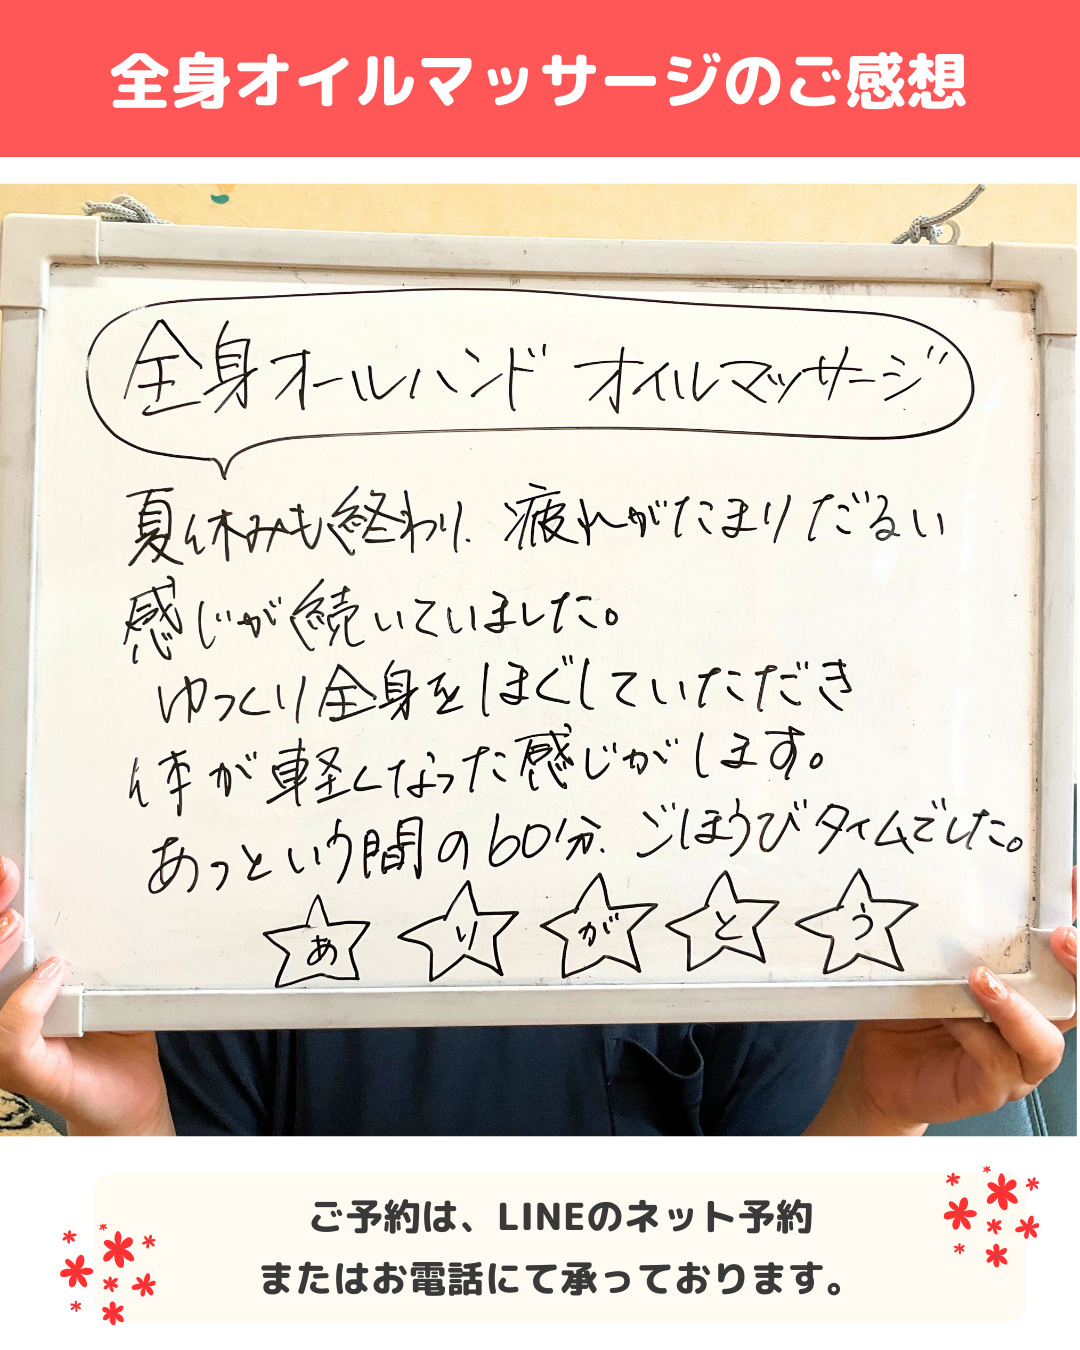 全身オイルマッサージのご感想
全身オールハンド オイルマッサージ
夏休みも終わり、疲れがたまりだるい
感じが続いていました。
ゆっくり全身をほぐしていただき
体が軽くなった感じがします。
あっという間の60分、ごほうびタイムでした。
ありがとう
ご予約は、LINEのネット予約
またはお電話にて承っております。